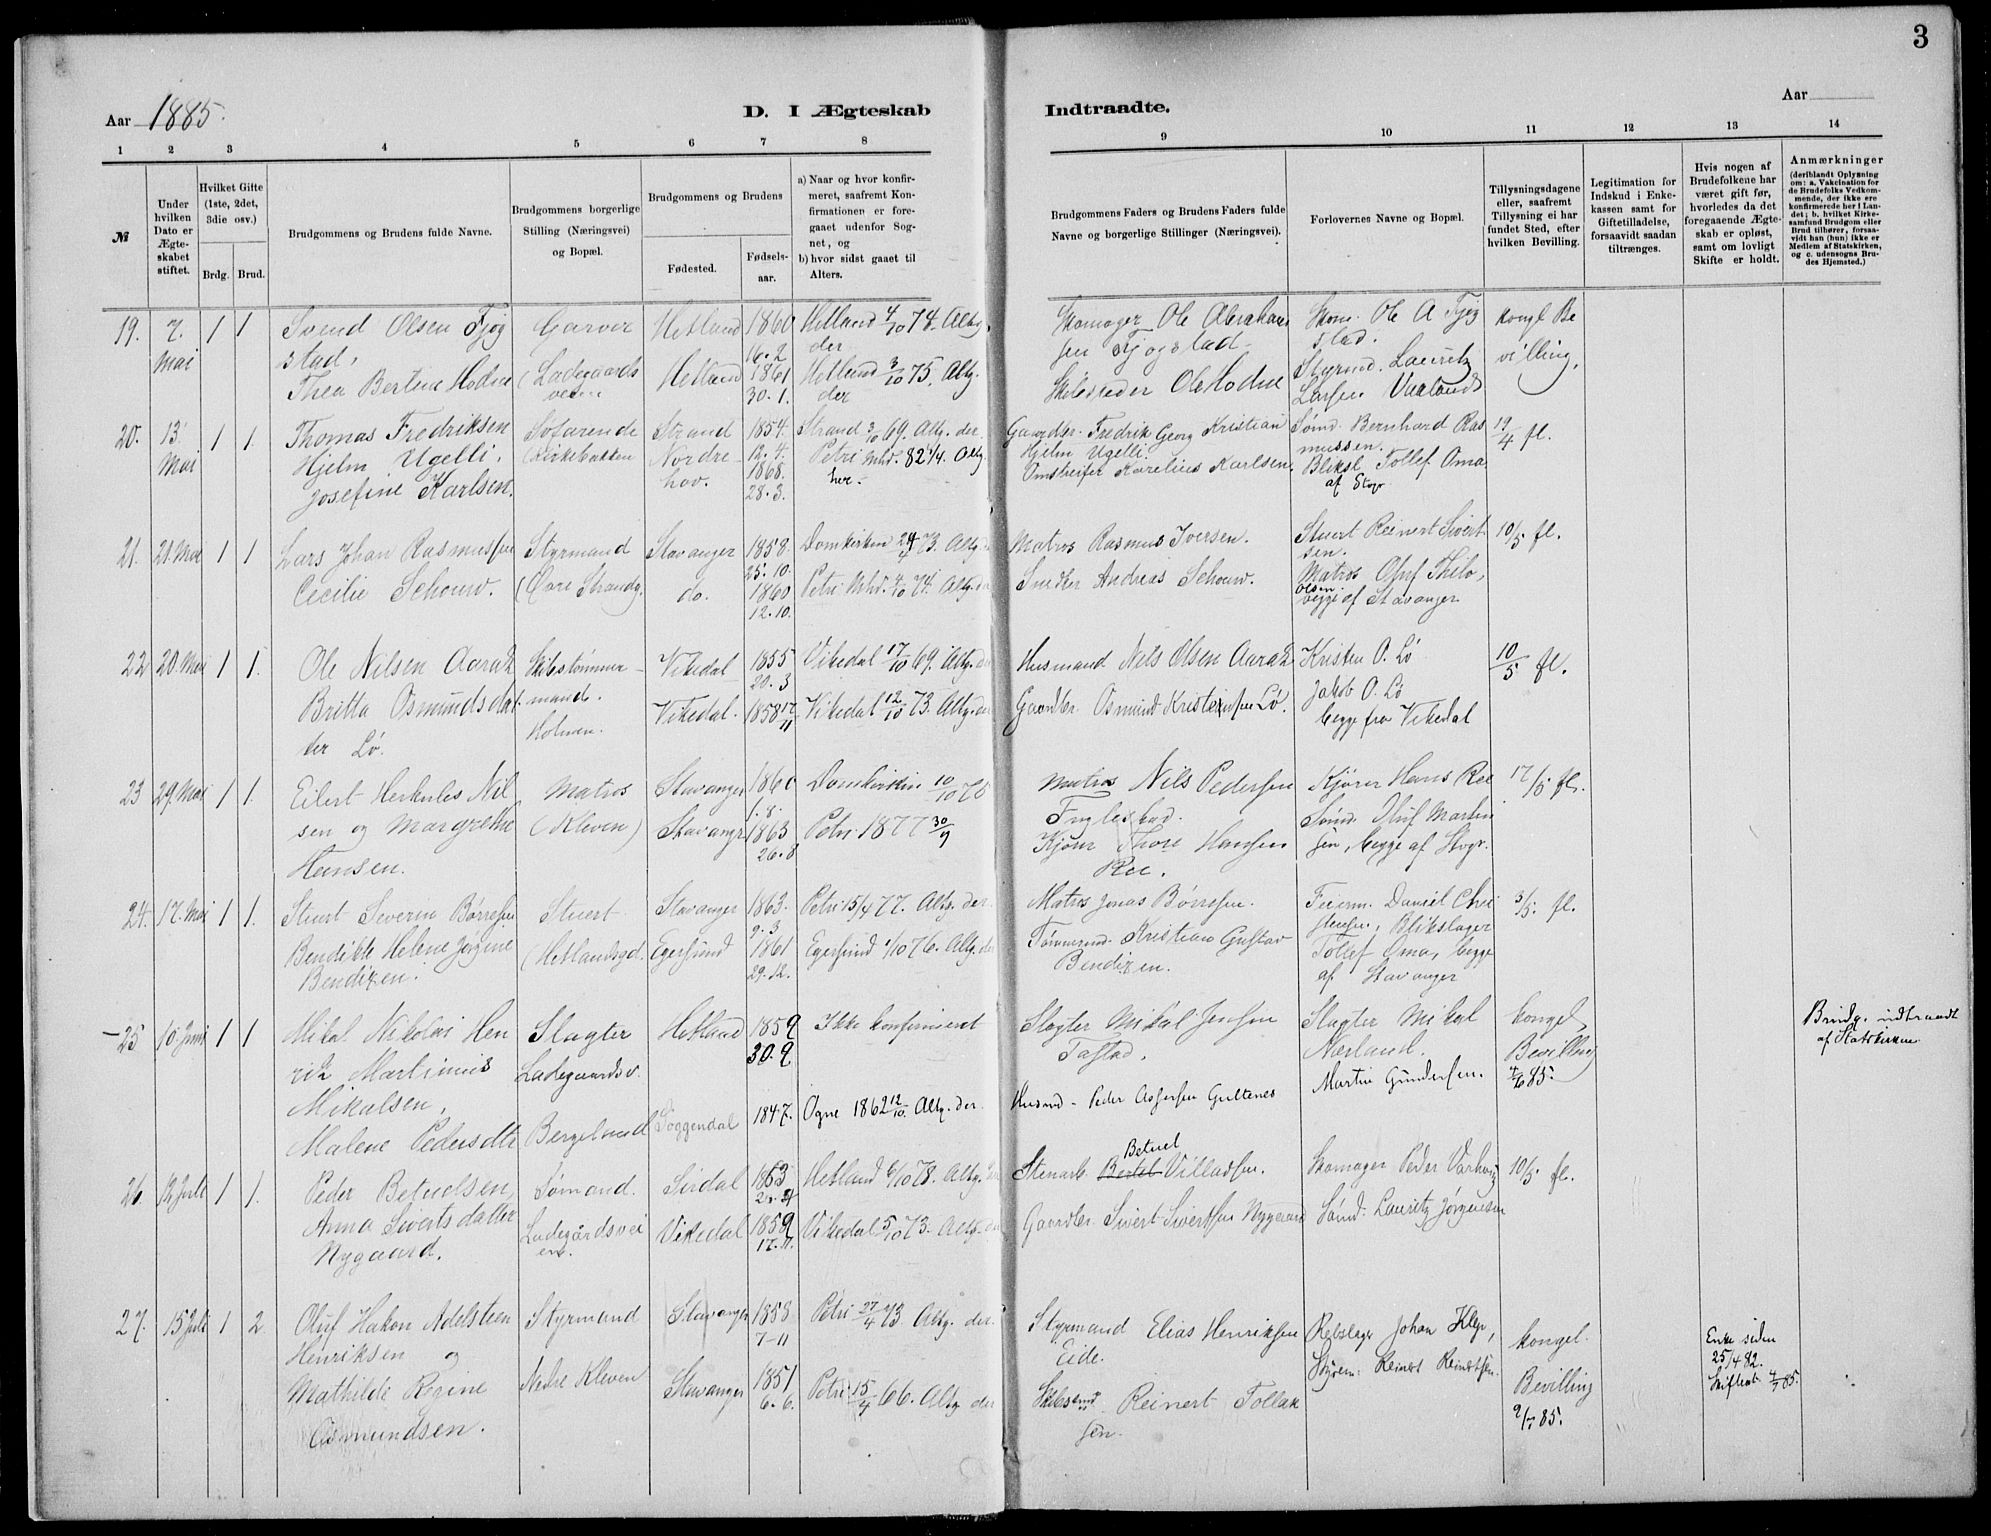 3
Aar 1885.
D. I Ægteskab
Indtraadte.
Aar
1 2 3 4 5 6 7 8
9 10 11 12 13 14
№
Under hvilken Dato er Ægteskabet stiftet.
Hvilket Gifte (1ste, 2det, 3die osv.)
Brdg. Brud.
Brudgommens og Brudens fulde Navne.
Brudgommens borgerlige Stilling (Næringsvei) og Bopæl.
Brudgommens og Brudens
Fødested.
Fødselsaar.
a) Naar og hvor konfirmeret, saafremt Konfirmationen er foregaaet udenfor Sognet, og
b) hvor sidst gaaet til Alters.
Brudgommens Faders og Brudens Faders fulde Navne og borgerlige Stillinger (Næringsvei).
Forlovernes Navne og Bopæl.
Tillysningsdagene eller, saafremt Tillysning ei har fundet Sted, efter hvilken Bevilling.
Legitimation for Indskud i Enkekassen samt for Giftetilladelse, forsaavidt saadan tiltrænges.
Hvis nogen af Brudefolkene har været gift før, hvorledes da det foregaaende Ægteskab er opløst, samt om lovligt Skifte er holdt.
Anmærkninger (deriblandt Oplysning om: a. Vakcination for de Brudefolks Vedkommende, der ikke ere konfirmerede her i Landet; b. hvilket Kirkesamfund Brudgom eller Brud tilhører, forsaavidt han (hun) ikke er Medlem af Statskirken, og c. udensogns Brudes Hjemsted.)
19. 7. Mai 1 1
Svend Olsen Tjøgstad,
Thea Bertine Hodne
Garver
(Ladegaardsveien
Hetland
Hetland
1860
16.2
1861
30.1.
Hetland 4/10 74. Altg. der
Hetland 3/10 75, Altg. der
Skomager Ole Abrahamsen Tjøgstad.
Skolelæder Ole Hodne
Skom. Ole A Tjøgstad.
Styrmd. Lauritz Larsen Varland
kongl Bevilling,
20. 13. Mai 1 1.
Thomas Fredriksen
Hjelm Ugelli,
Josefine Karlsen.
Søfarende
(Kirkebakken
Strand
Nordrehov.
1854.
12.4.
1868.
28.3.
Strand 3/10 69. Altg. der.
Petri Mhd. 82 Altg. her.
Gaardbr. Fredrik Georg Kristian
Hjelm Ugelli.
Omstreifer Karelius Karlsen.
Sømd. Bernhard Rasmussen.
Bliksl. Tollef Oma,
af Stvgr
19/4 fl.
21. 21. Mai 1 1
Lars Johan Rasmussen
Cecilie Schouw.
Styrmand
(Øvre Strandg.
Stavanger
do.
1858.
25.10.
1860
12.10.
Domkirken 24/4 73. Altg. der
Petri Mhd. 4/10 74. Altg. der
Matros Rasmus Iversen.
Smeder Andreas Schouw.
Stuert Reinert Sivertsen.
Matros Oluf Thilo Olsen,
begge af Stavanger
10/5 fl.
22 20. Mai 1 1.
Ole Nilsen Aarak
Britta Osmundsdatter Lø.
Skibstømmermand.
Holmen.
Vikedal
Vikedal.
1855
20.3
1858 17/11
Vikedal 17/10 69. Altg. der
Vikedal 12/10 73. Altg. der
Husmand Nils Olsen Aarak
Gaardbr. Osmund Kristensen Lø.
Kristen O. Lø
Jakob O. Lø
begge fra Vikedal
10/5 fl.
23 29. Mai 1 1.
Eilert Herkules Nilsen og Margrethe
Hansen.
Matros
(Kleven)
Stavanger
Stavanger
1860
1.8.
1863
26.8
Domkirken 10/10 75
Petri 1877 30/9
Matros Nils Pedersen
Fuglestad.
Kjører Thore Hansen
Roe.
Kjører Hans Roe
Sømd. Oluf Martinsen, begge af Stvgr.
17/5 fl.
24. 17. Mai 1 1.
Stuert Severin Børresen
Bendikte Helene Jørgine
Bendixen.
Stuert
(Hetlandsgd.
Stavanger
Egersund
1863.
9.3
1861
29.12.
Petri 15/4 77. Altg. der.
Egersund 1/10 76. Altg. der
Matros Jonas Børresen.
Tømmermd. Kristian Gustav
Bendixen.
Feierm. Daniel Christensen, Blikslager
Tollef Oma, begge
af Stavanger
3/5. fl.
25 10. Juni 1 1
Mikal Nikolai Henrik Martinius
Mikalsen,
Malene Pedersdtr
Slagter
Ladegaardsv.
Bergeland
Hetland
Soggendal
1859
30.9.
1847.
Ikke konfirmeret
Ogne 1862 12/10. Altg. der.
Slagter Mikal Jensen
Tastad.
Husmd. Peder Asgersen Gultenes
Slagter Mikal
Nærland.
Martin Gundersen.
kongel.
Bevilling
4/6 85.
Brudg. udtraadt
af Statskirken
26 12. Juli 1 1.
Peder Betuelsen,
Anna Sivertsdatter
Nygaard.
Sømand.
Ladegårdsveien.
Sirdal
Vikedal
1863
1859
17.11.
Hetland 6/10 78. Altg. der
Vikedal 5/10 73. Altg. der
Stenarb. Bertel Betuel Villadsen.
Gaardbr. Sivert Sivertsen Nygaard
Skomager Peder Varhoug
Sømd. Lauritz Jørgensen
10/5. fl.
27. 15 Juli 1 2
Oluf Hakon Adelsteen
Henriksen og
Mathilde Regine
Osmundsen.
Styrmand
Nedre Kleven
Stavanger
Stavanger
1858
7-11
1851
6.6.
Petri 27/4 73. Altg. der.
Petri 15/4 66. Altg. der
Styrmand Elias Henriksen
Eide.
Skibsmd Reinert Tollaksen.
Rebslager Johan Klep,
Styrm. Reinert Reinertsen.
kongel.
Bevilling
9/7 85.
Enke siden
25/4 82.
Skifteat. 4/7 85.